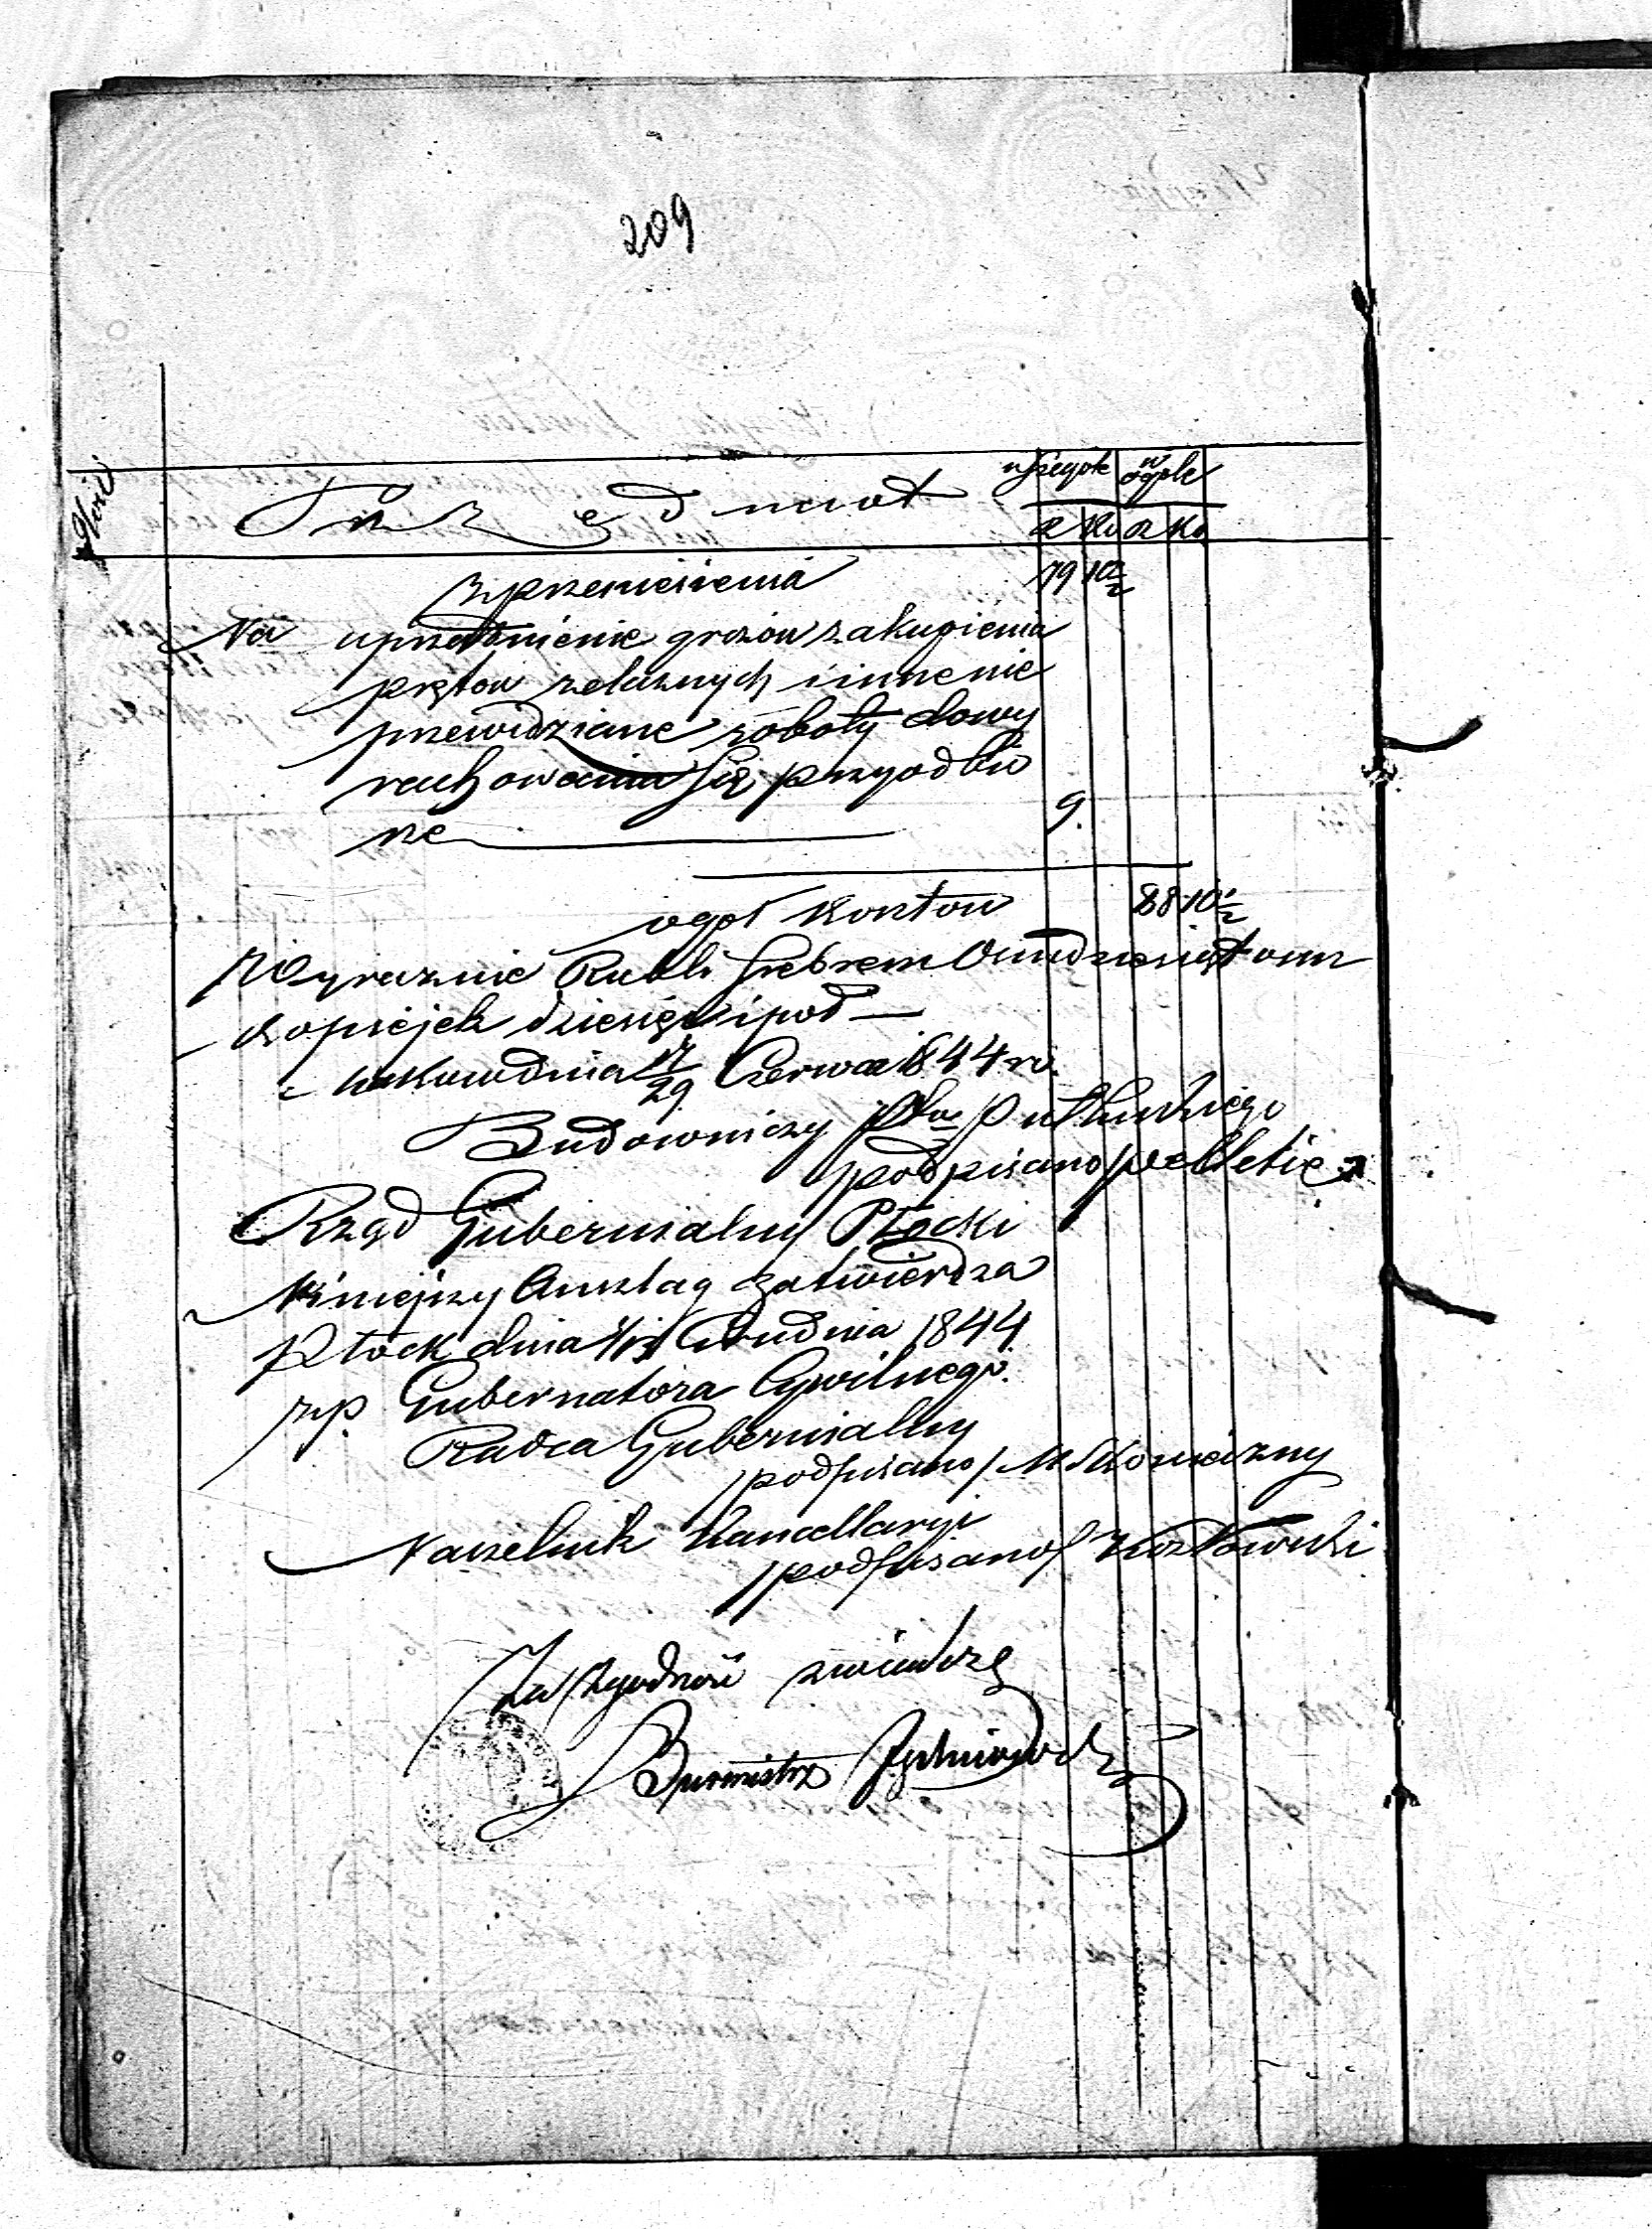 209
Ilość
Przedmiot
w szczegole
w ogole
R Ko R Ko
z przeniesienia 79 10 1/2
Na uprzątnienie gruzów zakupienia
prętów zelaznych i inne nie
przewidziane roboty do wy
rachowania się przy odbio
rze 9.
ogół kosztów 88.10 1/2
Wyraznie Rubli srebrem Osmdziesiąt osm
kopiejek dziesięć i pół —
dnia 17/29 Czerwca 1844 r.
Budowniczy Ptu Pułtuskiego
podpisano
Rząd Gubernialny Płocki
Niniejszy Anszlag zatwierdza
Płock dnia 4/16 Grudnia 1844
z up. Gubernatora Cywilnego.
Radca Gubernialny
podpisano /
Naczelnik Kancellaryi
podpisano / Kozłowski
Za zgodność swiadczę
Burmistrz